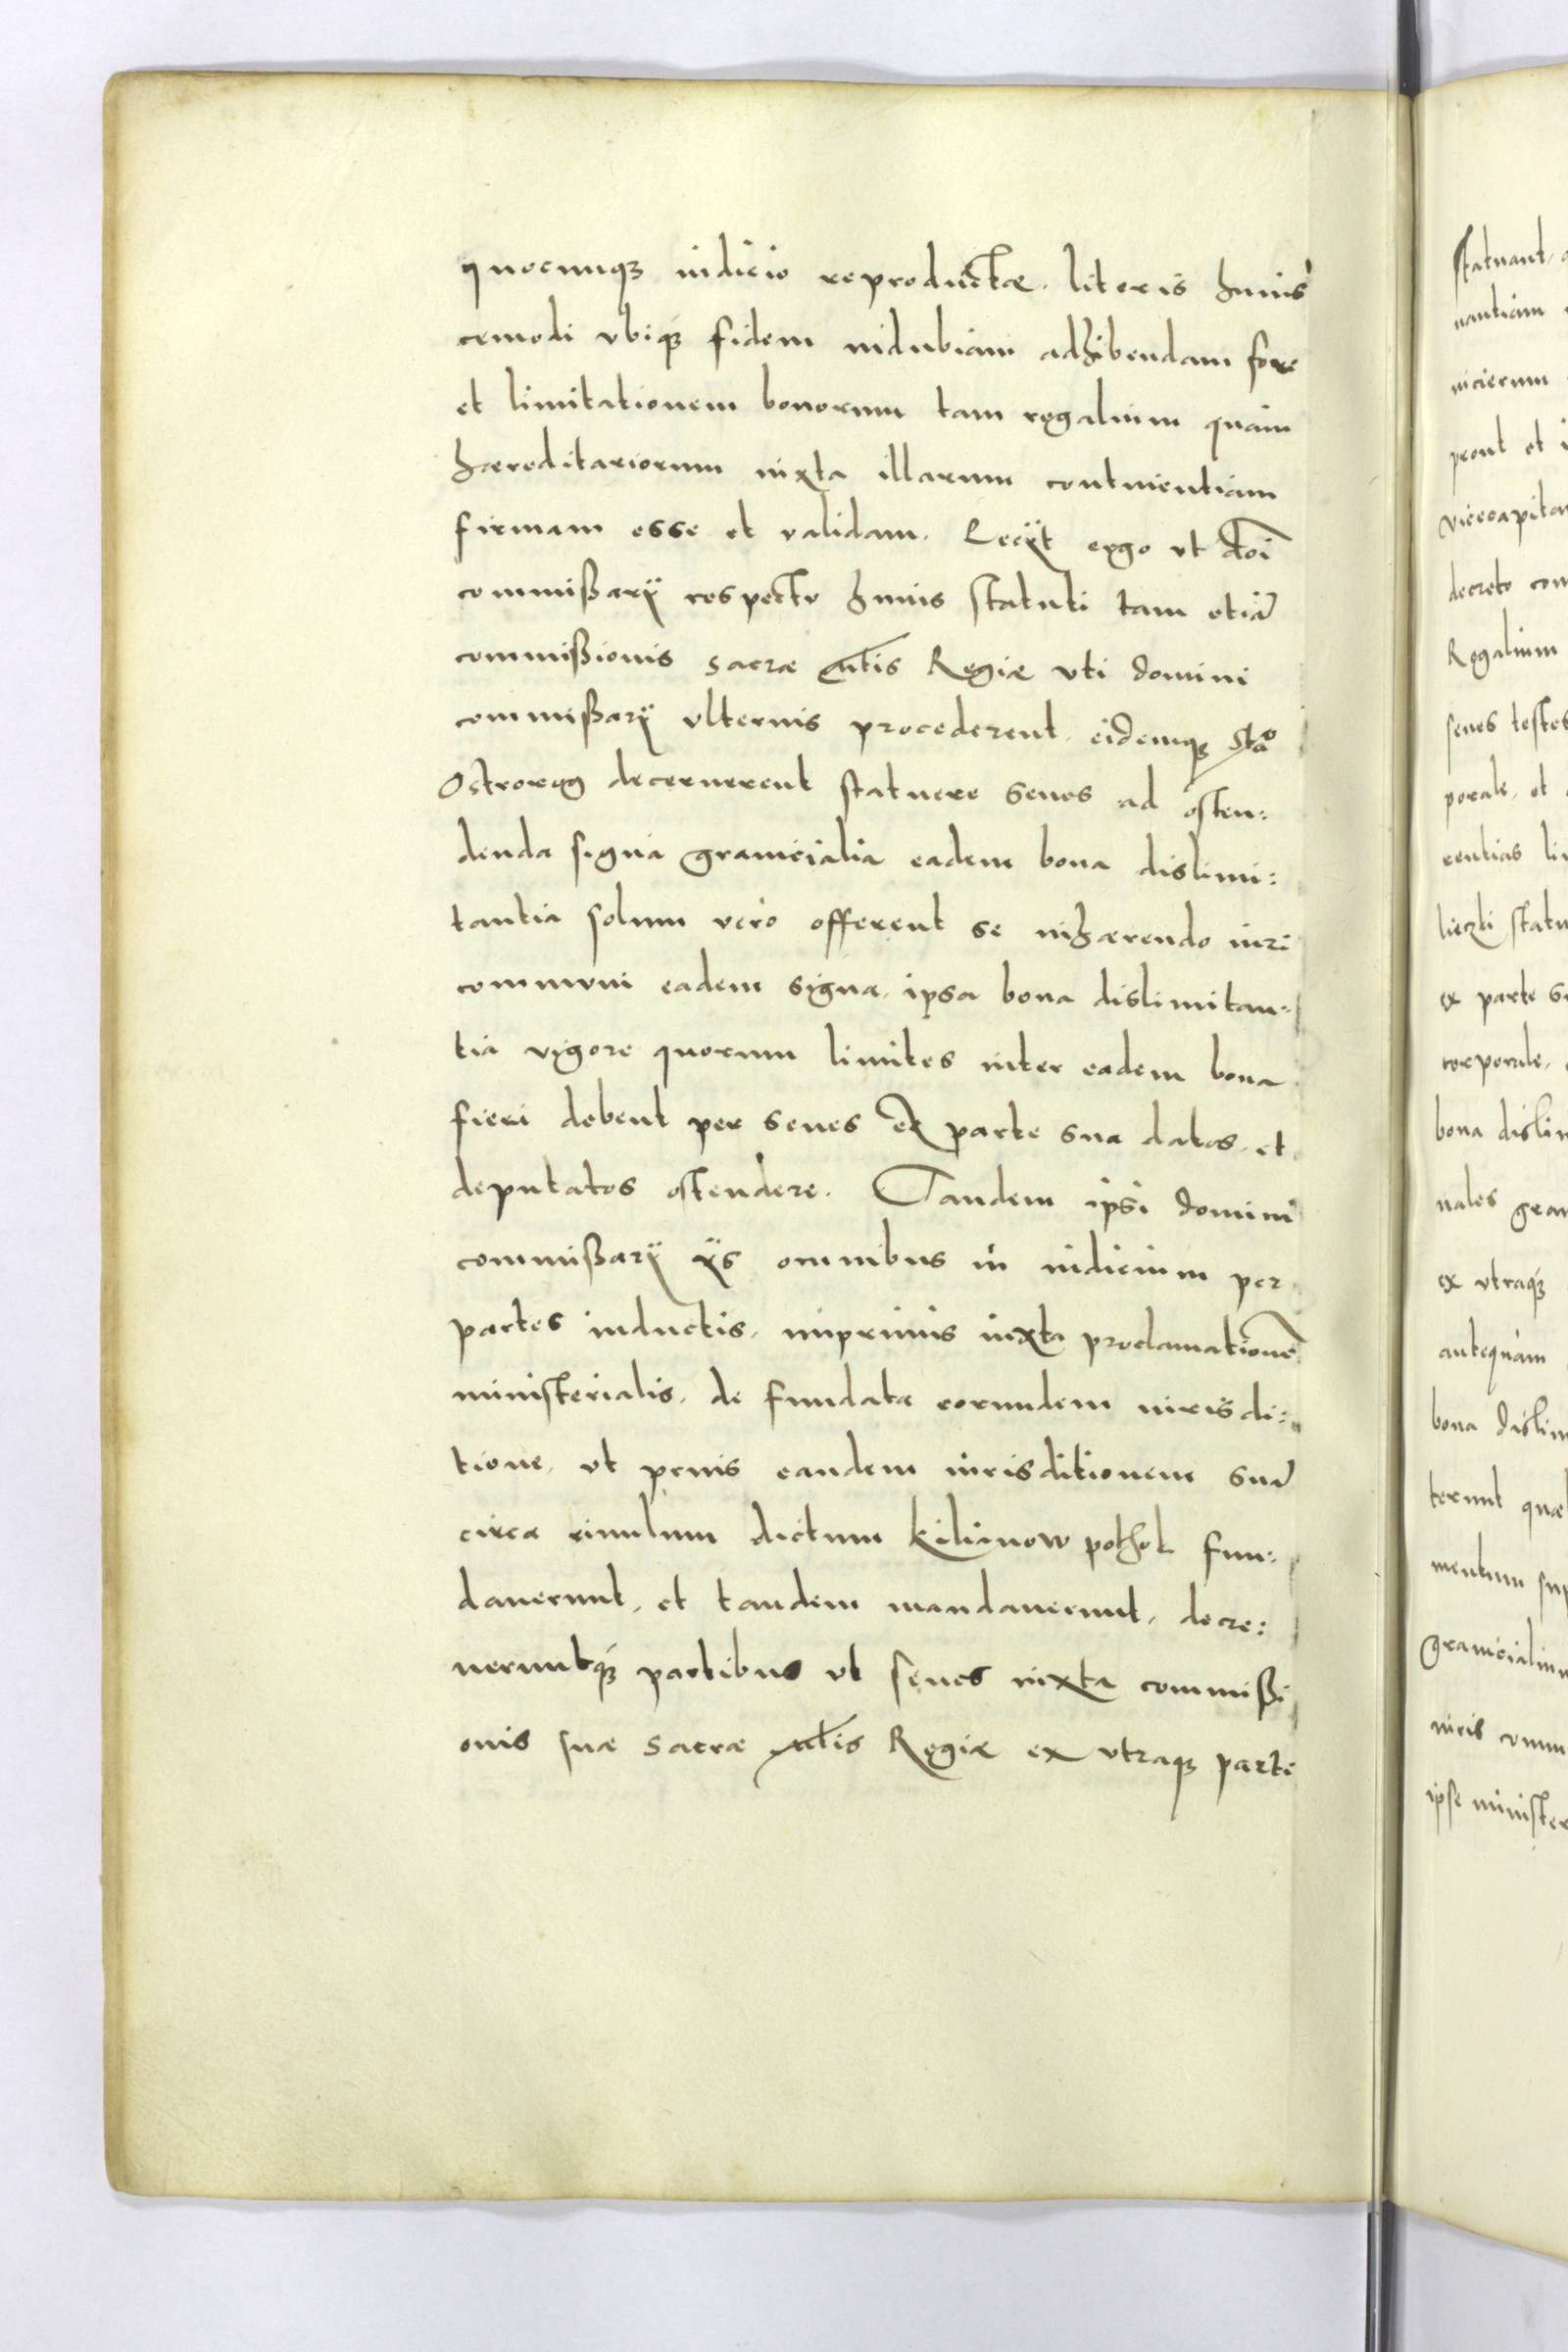 quocunqꝫ iudicio reproductæ. literis huius
cemodi vbiqꝫ fidem indubiam adhibendam fore
et limitationem bonorum tam regalium quàm
hæreditariorum iuxta illarum continentiam
firmam esse et validam. ergo vt
commißarÿ respectu huius statuti tam etiā
commißionis sacræ Mtis Regiæ vti domini
commißarÿ vlterius procederent. eidemqꝫ
Ostrorog decernerent statuere senes ad osten:
denda signa granicialia eadem bona dislimi:
tantia solum vero offerent se inhærendo iuri
communi eadem signa. ipsa bona dislimitan:
tia vigore quorum limites inter eadem bona
fieri debent per senes ex parte sua datos. et
deputatos ostendere. Tandem ipsi domini
commißarÿ ÿs omnibus in iudicium per
partes inductis. inprimis iuxta proclamationē
ministerialis. de fundata eorundem iurisdi:
tione. vt prius eandem iurisditionem suā
circa riuulum dictum Kilianow pothok fun:
dauerunt. et tandem mandauerunt. decre:
ueruntqꝫ partibus vt senes iuxta commißi
onis suæ sacræ Mtis Regiæ ex vtraqꝫ parte
statuant.
nantiam
prout et
decreto
Regalium
senes testes
porale. et
statu
ex parte
corporale.
bona
nales
ex vtraqꝫ
antequàm
bona
quæ
ipse